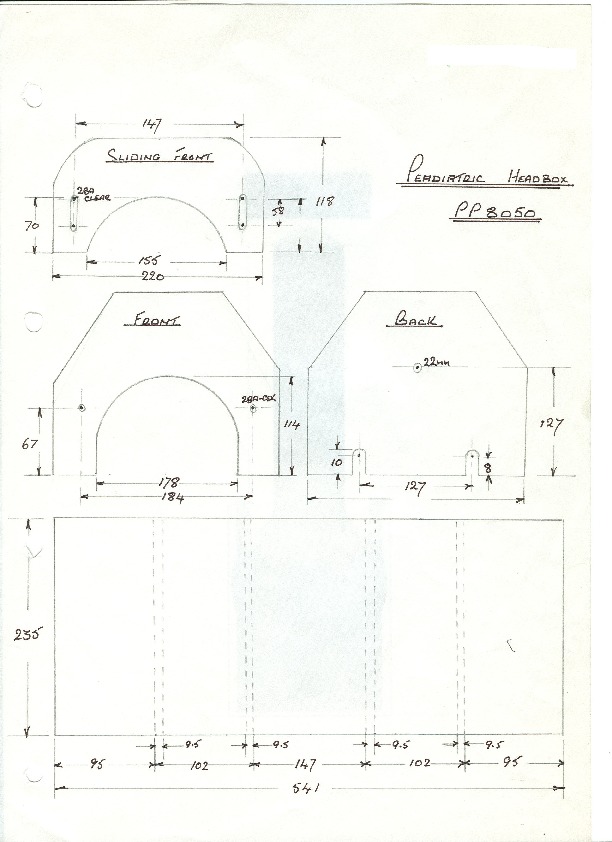 147
SLIDING FRONT
2BA
CLEAR
PEADIATRIC HEADBOX
PP8050
70
58
118
155
220
FRONT
BACK
22MM
67
114
127
10
8
178
184
127
235
9.5
9.5
9.5
9.5
95
102
147
102
95
541